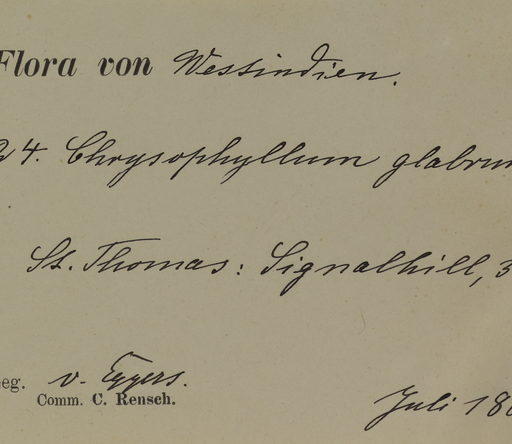 Flora von Westindien.
24. Chrysophyllum glabrum
St. Thomas: Signalhill, 3
leg. v. Eggers.
Comm. C. Rensch.
Juli 18